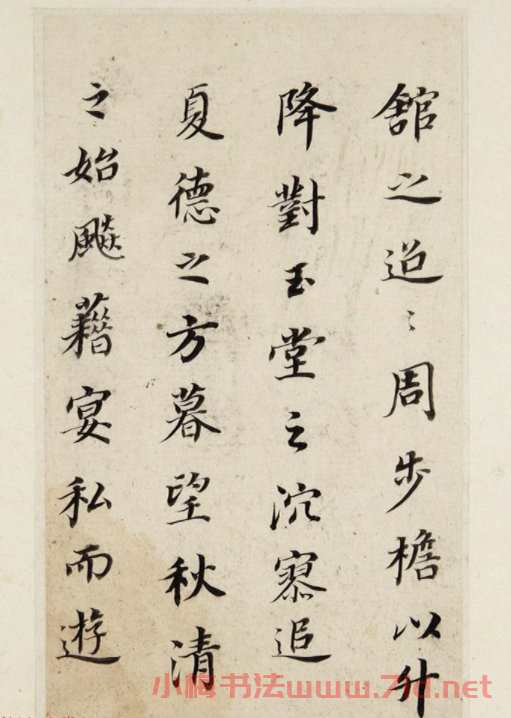 舘之迢〻周步檐以升
降對玉堂之泬寥追
夏德之方暮望秋清
之始飈藉宴私而遊
小梅书法www.7jd.net